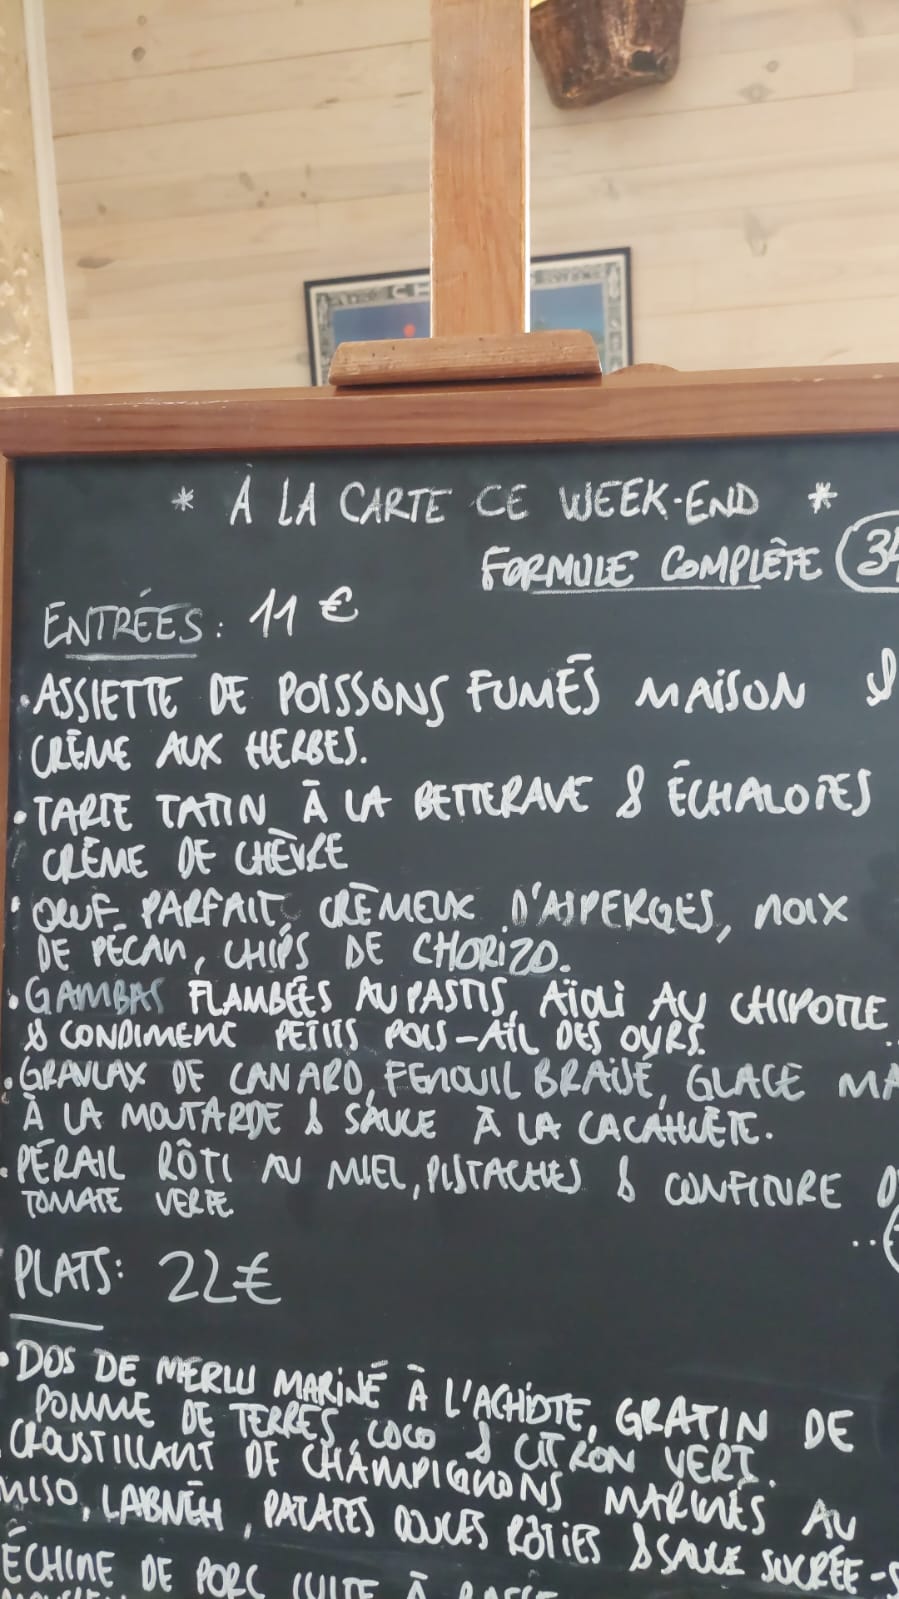 * À LA CARTE CE WEEK-END *
FORMULE COMPLÈTE
ENTRÉES: 11 €
• ASSIETTE DE POISSONS FUMÉS MAISON &
CRÈME AUX HERBES.
• TARTE TATIN À LA BETTERAVE & ÉCHALOTES
CRÈME DE CHÈVRE
• ŒUF PARFAIT, CRÈMEUX D'ASPERGES, NOIX
DE PÉCAN, CHIPS DE CHORIZO.
• GAMBAS FLAMBÉES AU PASTIS, AÏOLI AU CHIPOTLE
& CONDIMENT PETITS POIS-AIL DES OURS.
• GRAVLAX DE CANARD, FENOUIL BRAISÉ, GLACE MA
À LA MOUTARDE & SAUCE À LA CACAHUÈTE.
• PÉRAIL RÔTI AU MIEL, PISTACHES & CONFITURE D
TOMATE VERTE.
PLATS: 22€
• DOS DE MERLU MARINÉ À L'ACHIOTE, GRATIN DE
POMME DE TERRES, COCO & CITRON VERT.
CROUSTILLANT DE CHAMPIGNONS MARINÉS AU
MISO, LABNEH, PATATES DOUCES RÔTIES & SAUCE SUCRÉE-S
ÉCHINE DE PORC CUITE À BASSE